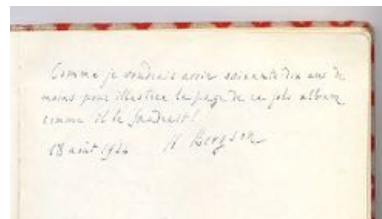 Comme je voudrais avoir soixante dix ans de
moins pour illustrer la page de ce joli album
comme il le faudrait!
18 août 1924 H Bergson